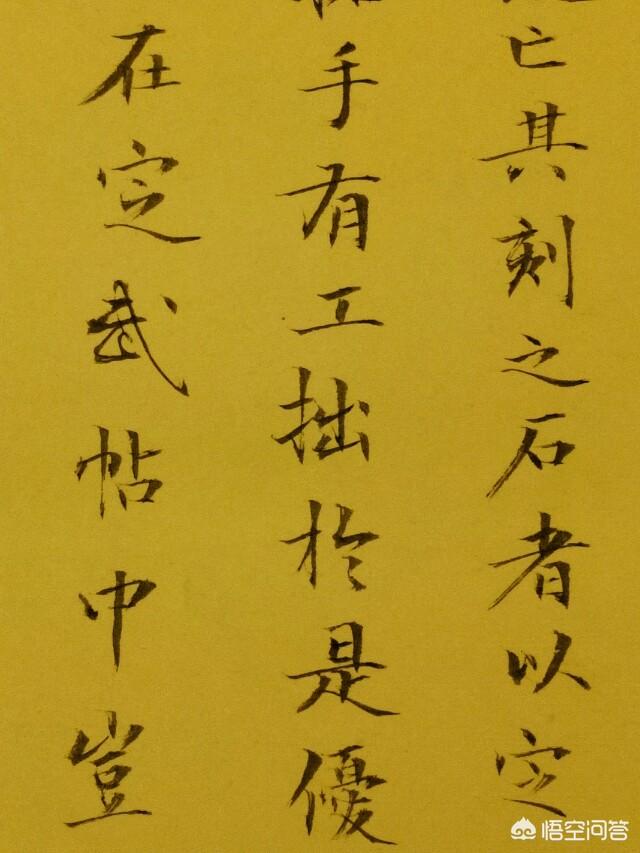 亡其刻之石者以定
手有工拙於是優
在定武帖中豈
悟空问答